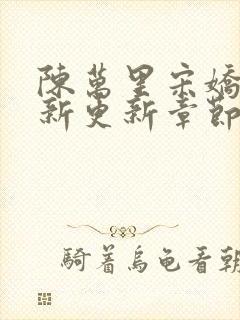 陳萬里宋嬌
新更新章節
騎着烏龜看朝